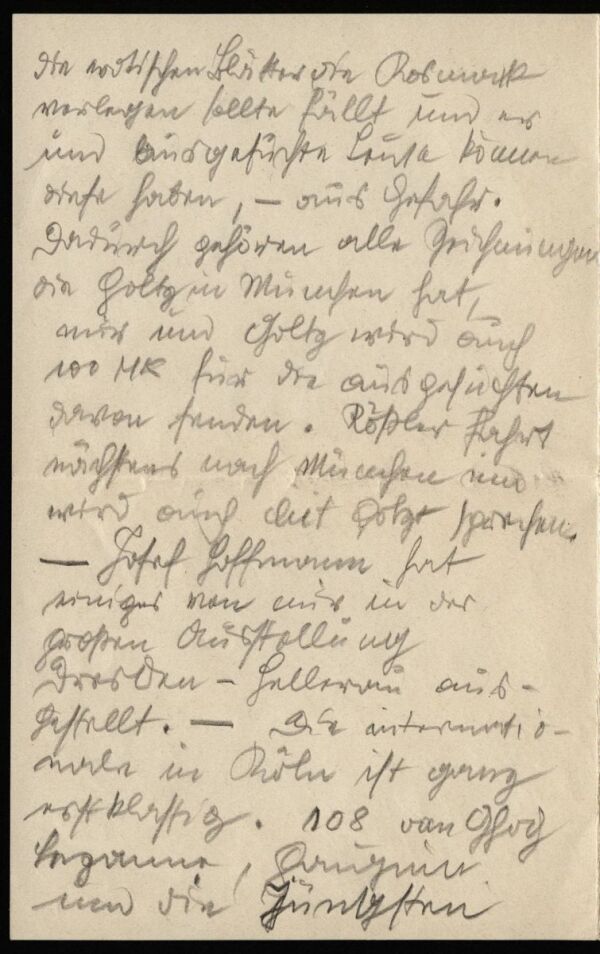 die erotischen Blätter die Rosmark
verlegen sollte fällt und er
und ausgesuchte Leute können
diese haben, – aus Gefahr.
Dadurch gehören alle Zeichnungen
die Goltz in München hat,
mir und Goltz wird auch
100 MK für die ausgesuchten
davon senden. Rößler fährt
nächstens nach München und
wird auch mit Goltz sprechen.
— Josef Hoffmann hat
einiges von mir in der
großen Ausstellung
Dresden – Hellerau aus-
gestellt. — Die internatio-
nale in Köln ist ganz
erstklassig. 108 van Ghog
Cezanne, Gauguin
und die Jüngsten